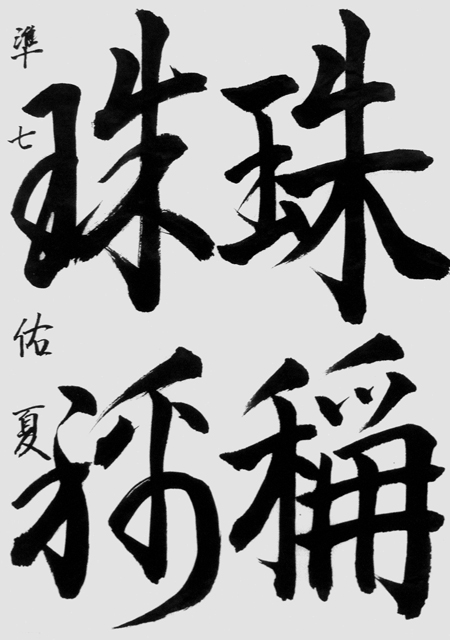 珠稱
珠称
準七 佑夏